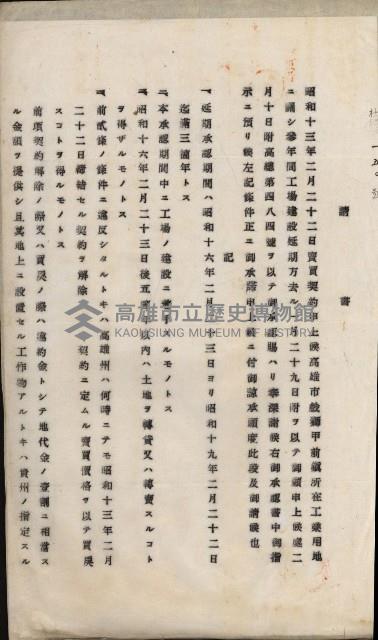 請書
昭和十三年二月二十二日賣買契約申上候高雄市戲獅甲前鎮所在工業用地
ニ關シ參年間工場建設延期方去ル一月二十九日附ヲ以テ御願申上候處二
月十日附高總第四八四號ヲ以テ御承認賜ハリ奉深謝候右御承認書中御指
示ニ預リ候左記條件正ニ御承諾申上候ニ付御諒承願度此段及御請候也
記
一、延期承認期間ハ昭和十六年二月二十三日ヨリ昭和十九年二月二十二日
迄滿三箇年トス
一、本承認期間中ニ工場ノ建設ニ著手スルモノトス
一、昭和十六年二月二十三日後五箇年以內ハ土地ヲ轉貸又ハ轉賣スルコト
ヲ得ザルモノトス
一、前貳條ノ條件ニ違反シタルトキハ高雄州ハ何時ニテモ昭和十三年二月
二十二日締結セル契約ヲ解除シ契約ニ定ムル賣買價格ヲ以テ買戾
スコトヲ得ルモノトス
前項契約解除ノ際又ハ買戾ノ際ハ違約金トシテ地代金ノ壹割ニ相當ス
ル金額ヲ提供シ且其地上ニ設置セル工作物アルトキハ貴州ノ指定スル
高雄市立歷史博物館
KAOHSIUNG MUSEUM OF HISTORY